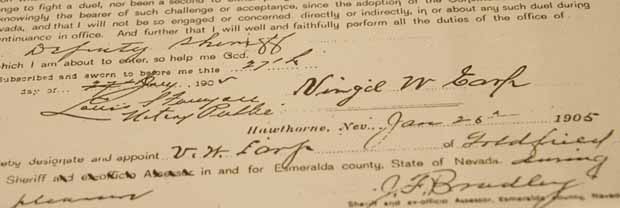 nge to fight a duel, nor been a second to
knowingly the bearer of such challenge or acceptance, since the adoption of the
vada, and that I will not be so engaged or concerned, directly or indirectly, in or about any such duel during
ntinuance in office. And further that I will well and faithfully perform all the duties of the office of
Deputy Sheriff
hich I am about to enter, so help me God.
Subscribed and sworn to before me this 27th
day of Jany. 1905
Virgil W Earp
Notary Public
Hawthorne, Nev. Jan 26th 1905
eby designate and appoint V. W. Earp of Goldfield
Sheriff and ex-officio Assessor in and for Esmeralda county, State of Nevada. during
pleasure
J. F. Bradley
Sheriff and ex-officio Assessor, Esmeralda County, Nevada